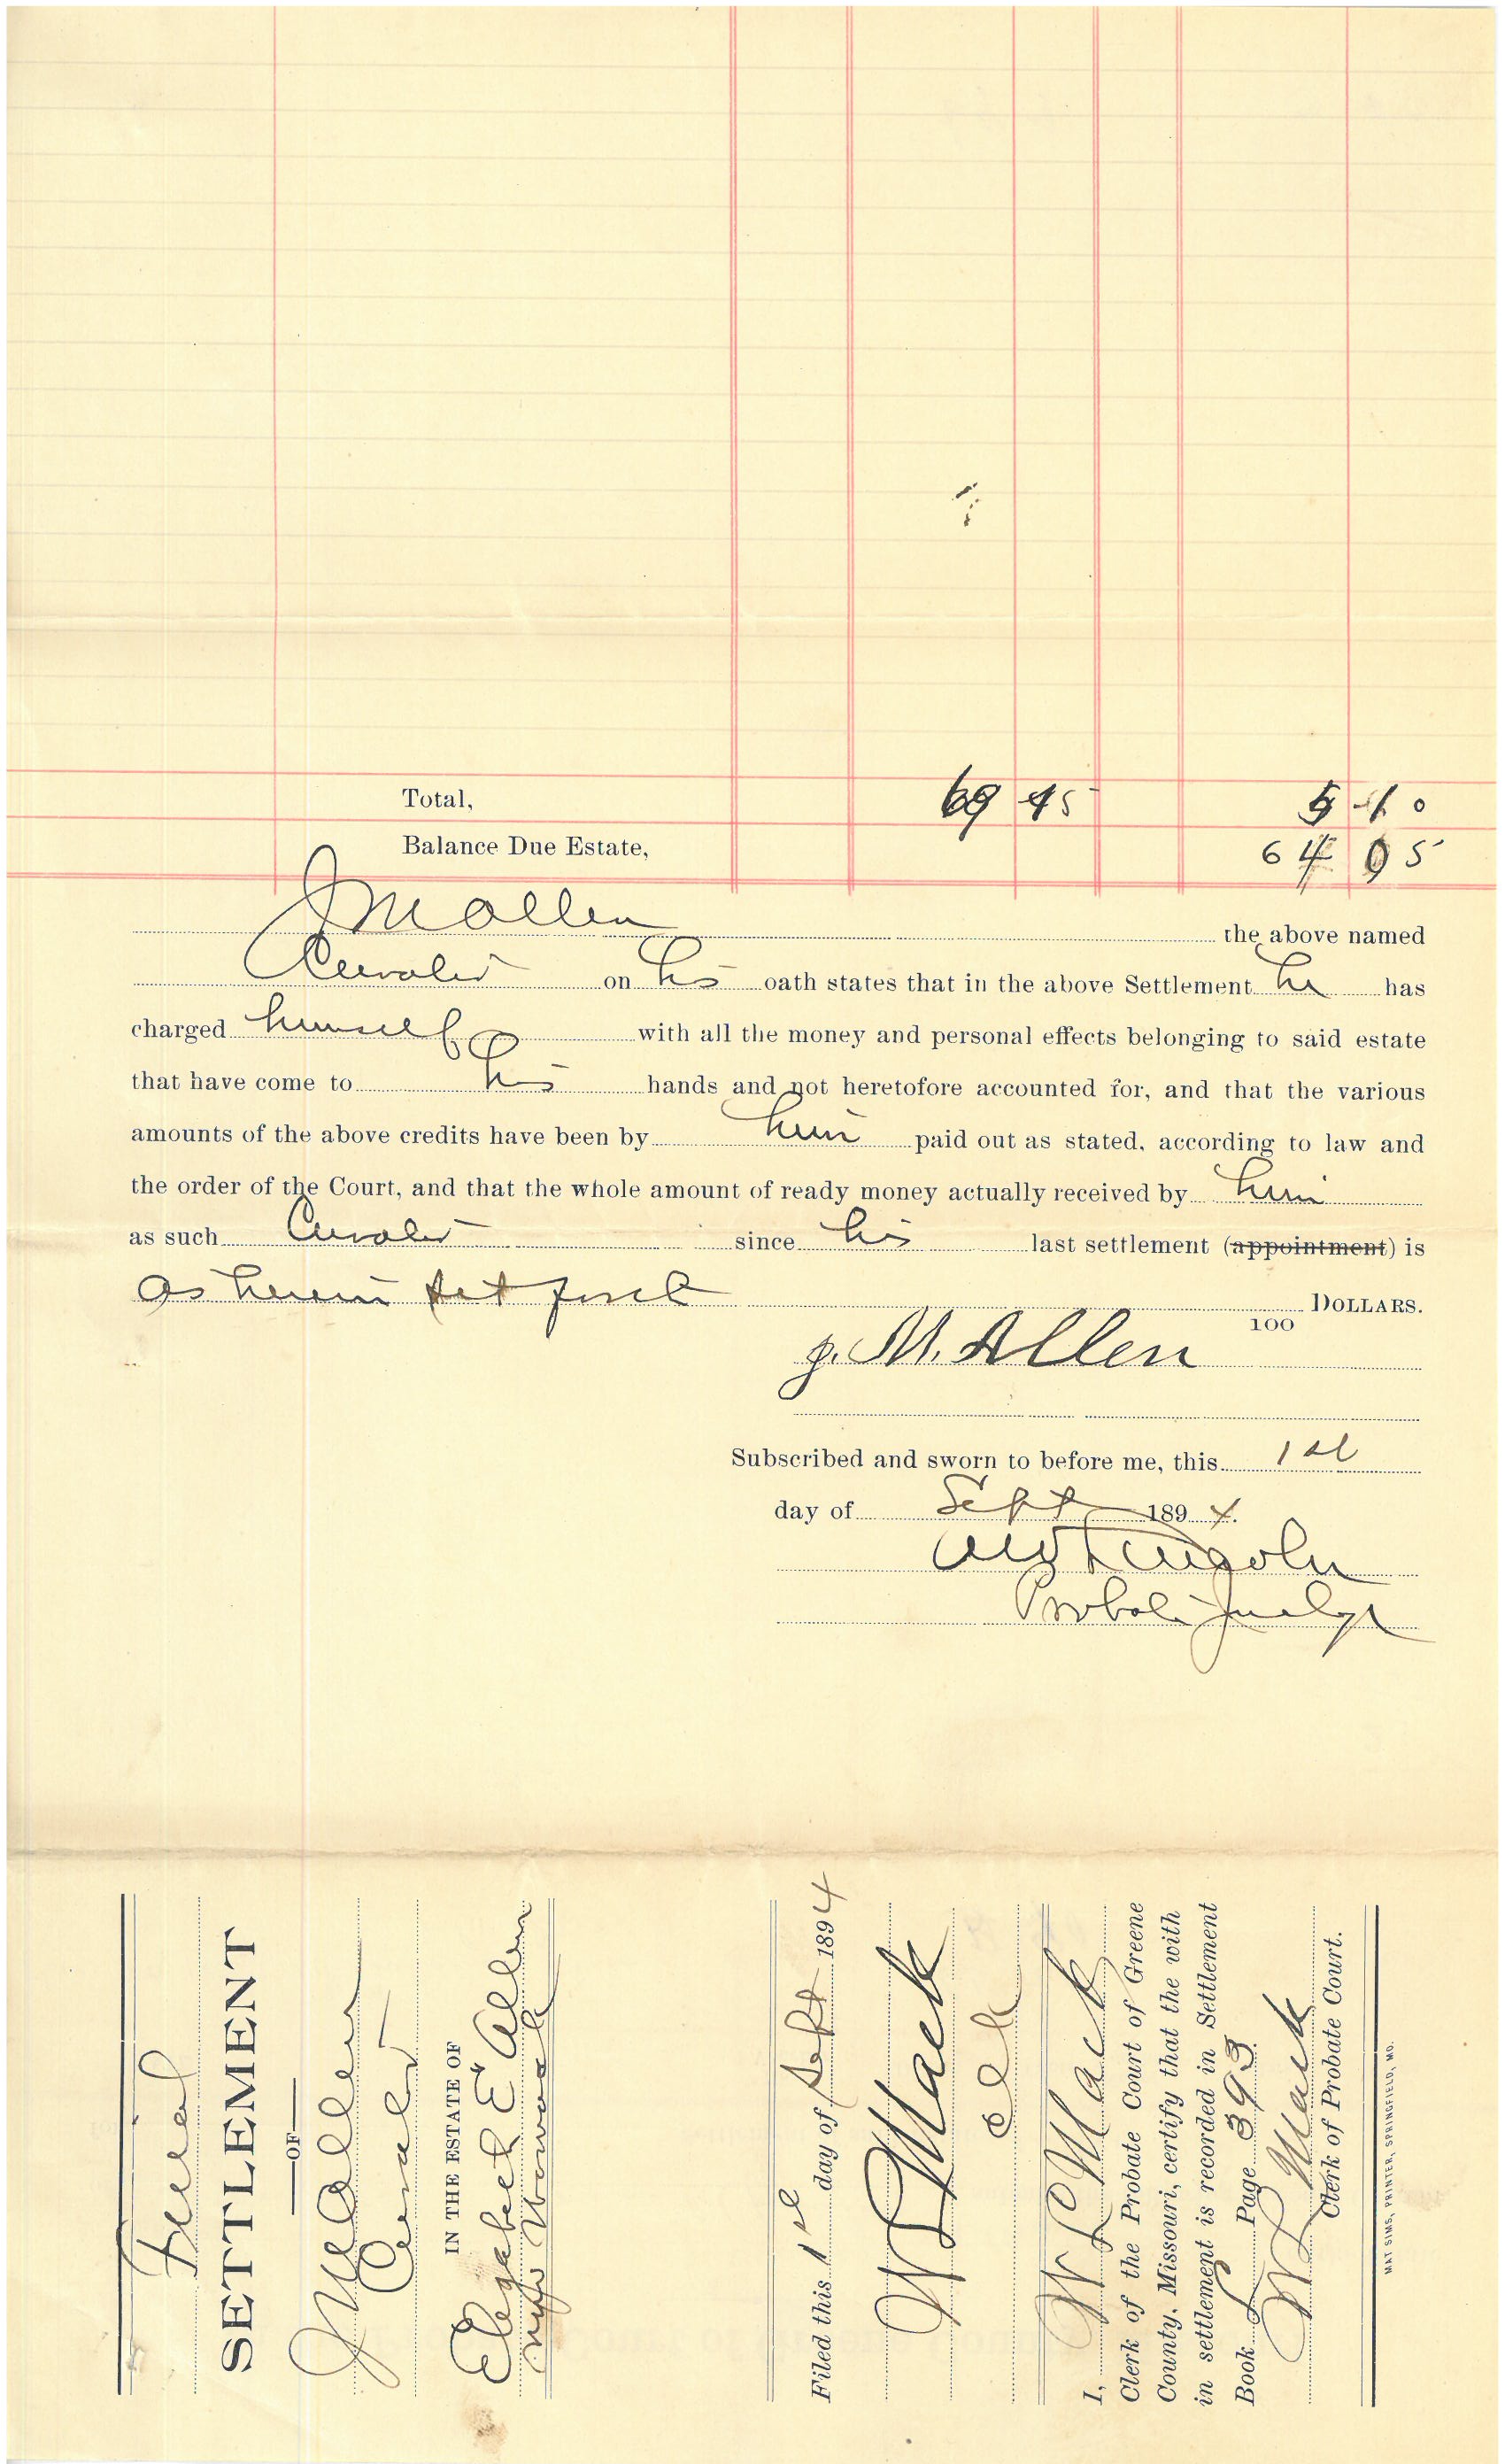 Total, 69 45 5 40
Balance Due Estate, 64 05
J M Allen the above named
Curator on his oath states that in the above Settlement he has
charged himself with all the money and personal effects belonging to said estate
that have come to his hands and not heretofore accounted for, and that the various
amounts of the above credits have been by him paid out as stated, according to law and
the order of the Court, and that the whole amount of ready money actually received by him
as such Curator since his last settlement (appointment) is
as herein set forth DOLLARS.
100
J. M. Allen
Subscribed and sworn to before me, this 1st
day of Sept 1894.
Lincoln
Probate Judge
Final
SETTLEMENT
OF
J M Allen
Curator
IN THE ESTATE OF
Elizabeth E Allen
now
Filed this 1st day of Sept 1894
W L Mack
Clk
I, W L Mack
Clerk of the Probate Court of Greene
County, Missouri, certify that the with
in settlement is recorded in Settlement
Book Page 393
W L Mack
Clerk of Probate Court.
MAT SIMS, PRINTER, SPRINGFIELD, MO.